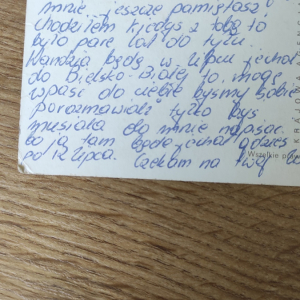 mnie jeszcze pamiętasz
chodziłem kiedyś z tobą to
było parę lat do tyłu.
Wandzia będę w lipcu jechał
do Bielsko-Białej to mogę
wpaść do ciebie byśmy sobie
porozmawiali tylko byś
musiała do mnie napisać
bo ja tam będę jechał gdzieś
po 12 lipca. Czekam na twój
Wszelkie